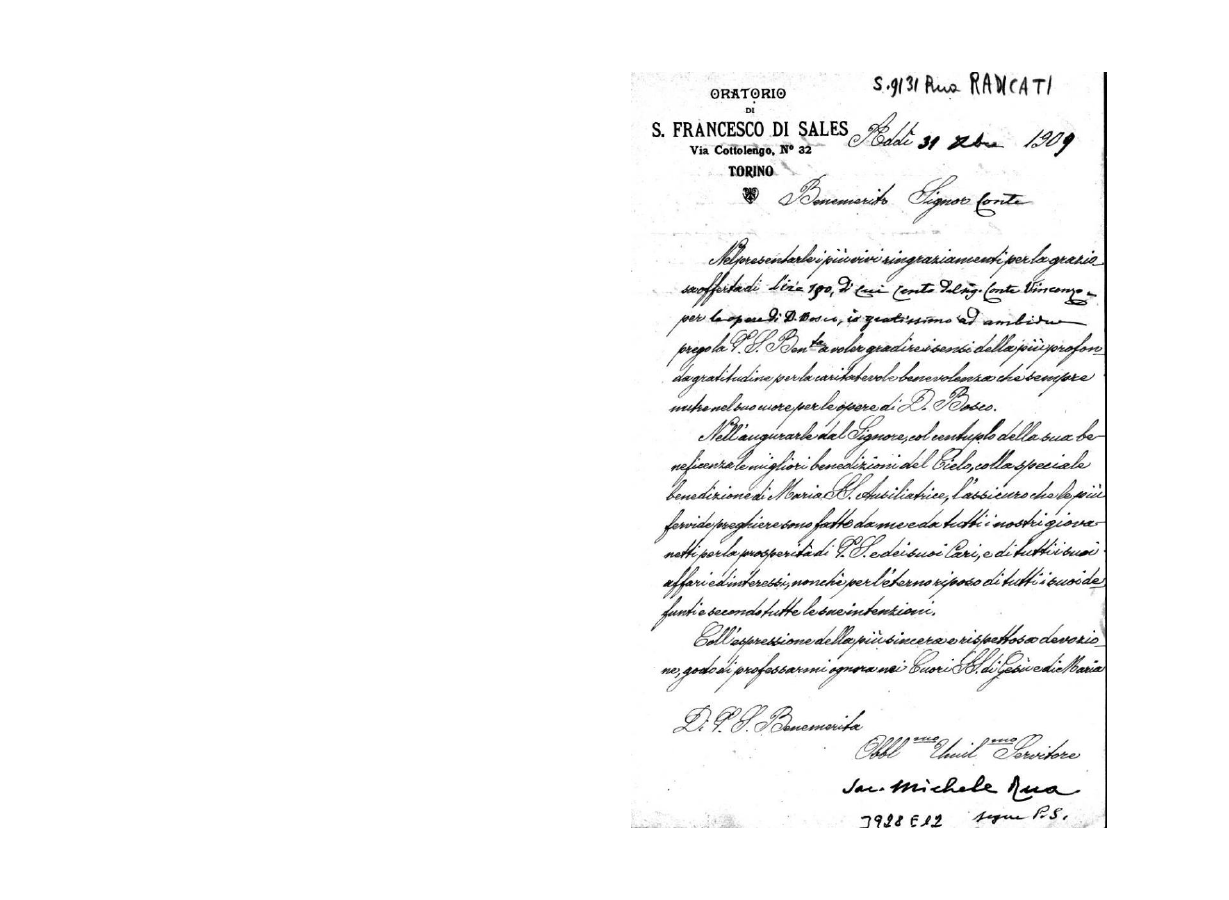 S.9131 Rua RADICATI
ORATORIO
DI
S. FRANCESCO DI SALES
Via Cottolengo, Nº 32
TORINO
Addì 31 Xbre 1909
Benemerito Signor Conte
Nel presentarle i più vivi ringraziamenti per la grazio
sa offerta di lire 190, di cui cento del sig. Conte Vincenzo
per le opere di D. Bosco, io gratissimo ad ambidue
prego la V. S. Ben.ta a voler gradire i sensi della più profon
da gratitudine per la caritatevole benevolenza che sempre
nutre nel suo cuore per le opere di D. Bosco.
Nell'augurarle dal Signore, col centuplo della sua be
neficenza le migliori benedizioni del Cielo, colla speciale
benedizione di Maria SS. Ausiliatrice, l'assicuro che le più
fervide preghiere sono fatte da me e da tutti i nostri giova
netti per la prosperità di V. S. e dei suoi Cari, e di tutti i suoi
affari ed interessi, nonchè per l'eterno riposo di tutti i suoi de
funti e secondo tutte le sue intenzioni.
Coll'espressione della più sincera e rispettosa devozio
ne, godo di professarmi ognora nei Cuori SS. di Gesù e di Maria
Di V. S. Benemerita
Obbl.mo Umil.mo Servitore
Sac. Michele Rua
3928 E12 segue P.S.